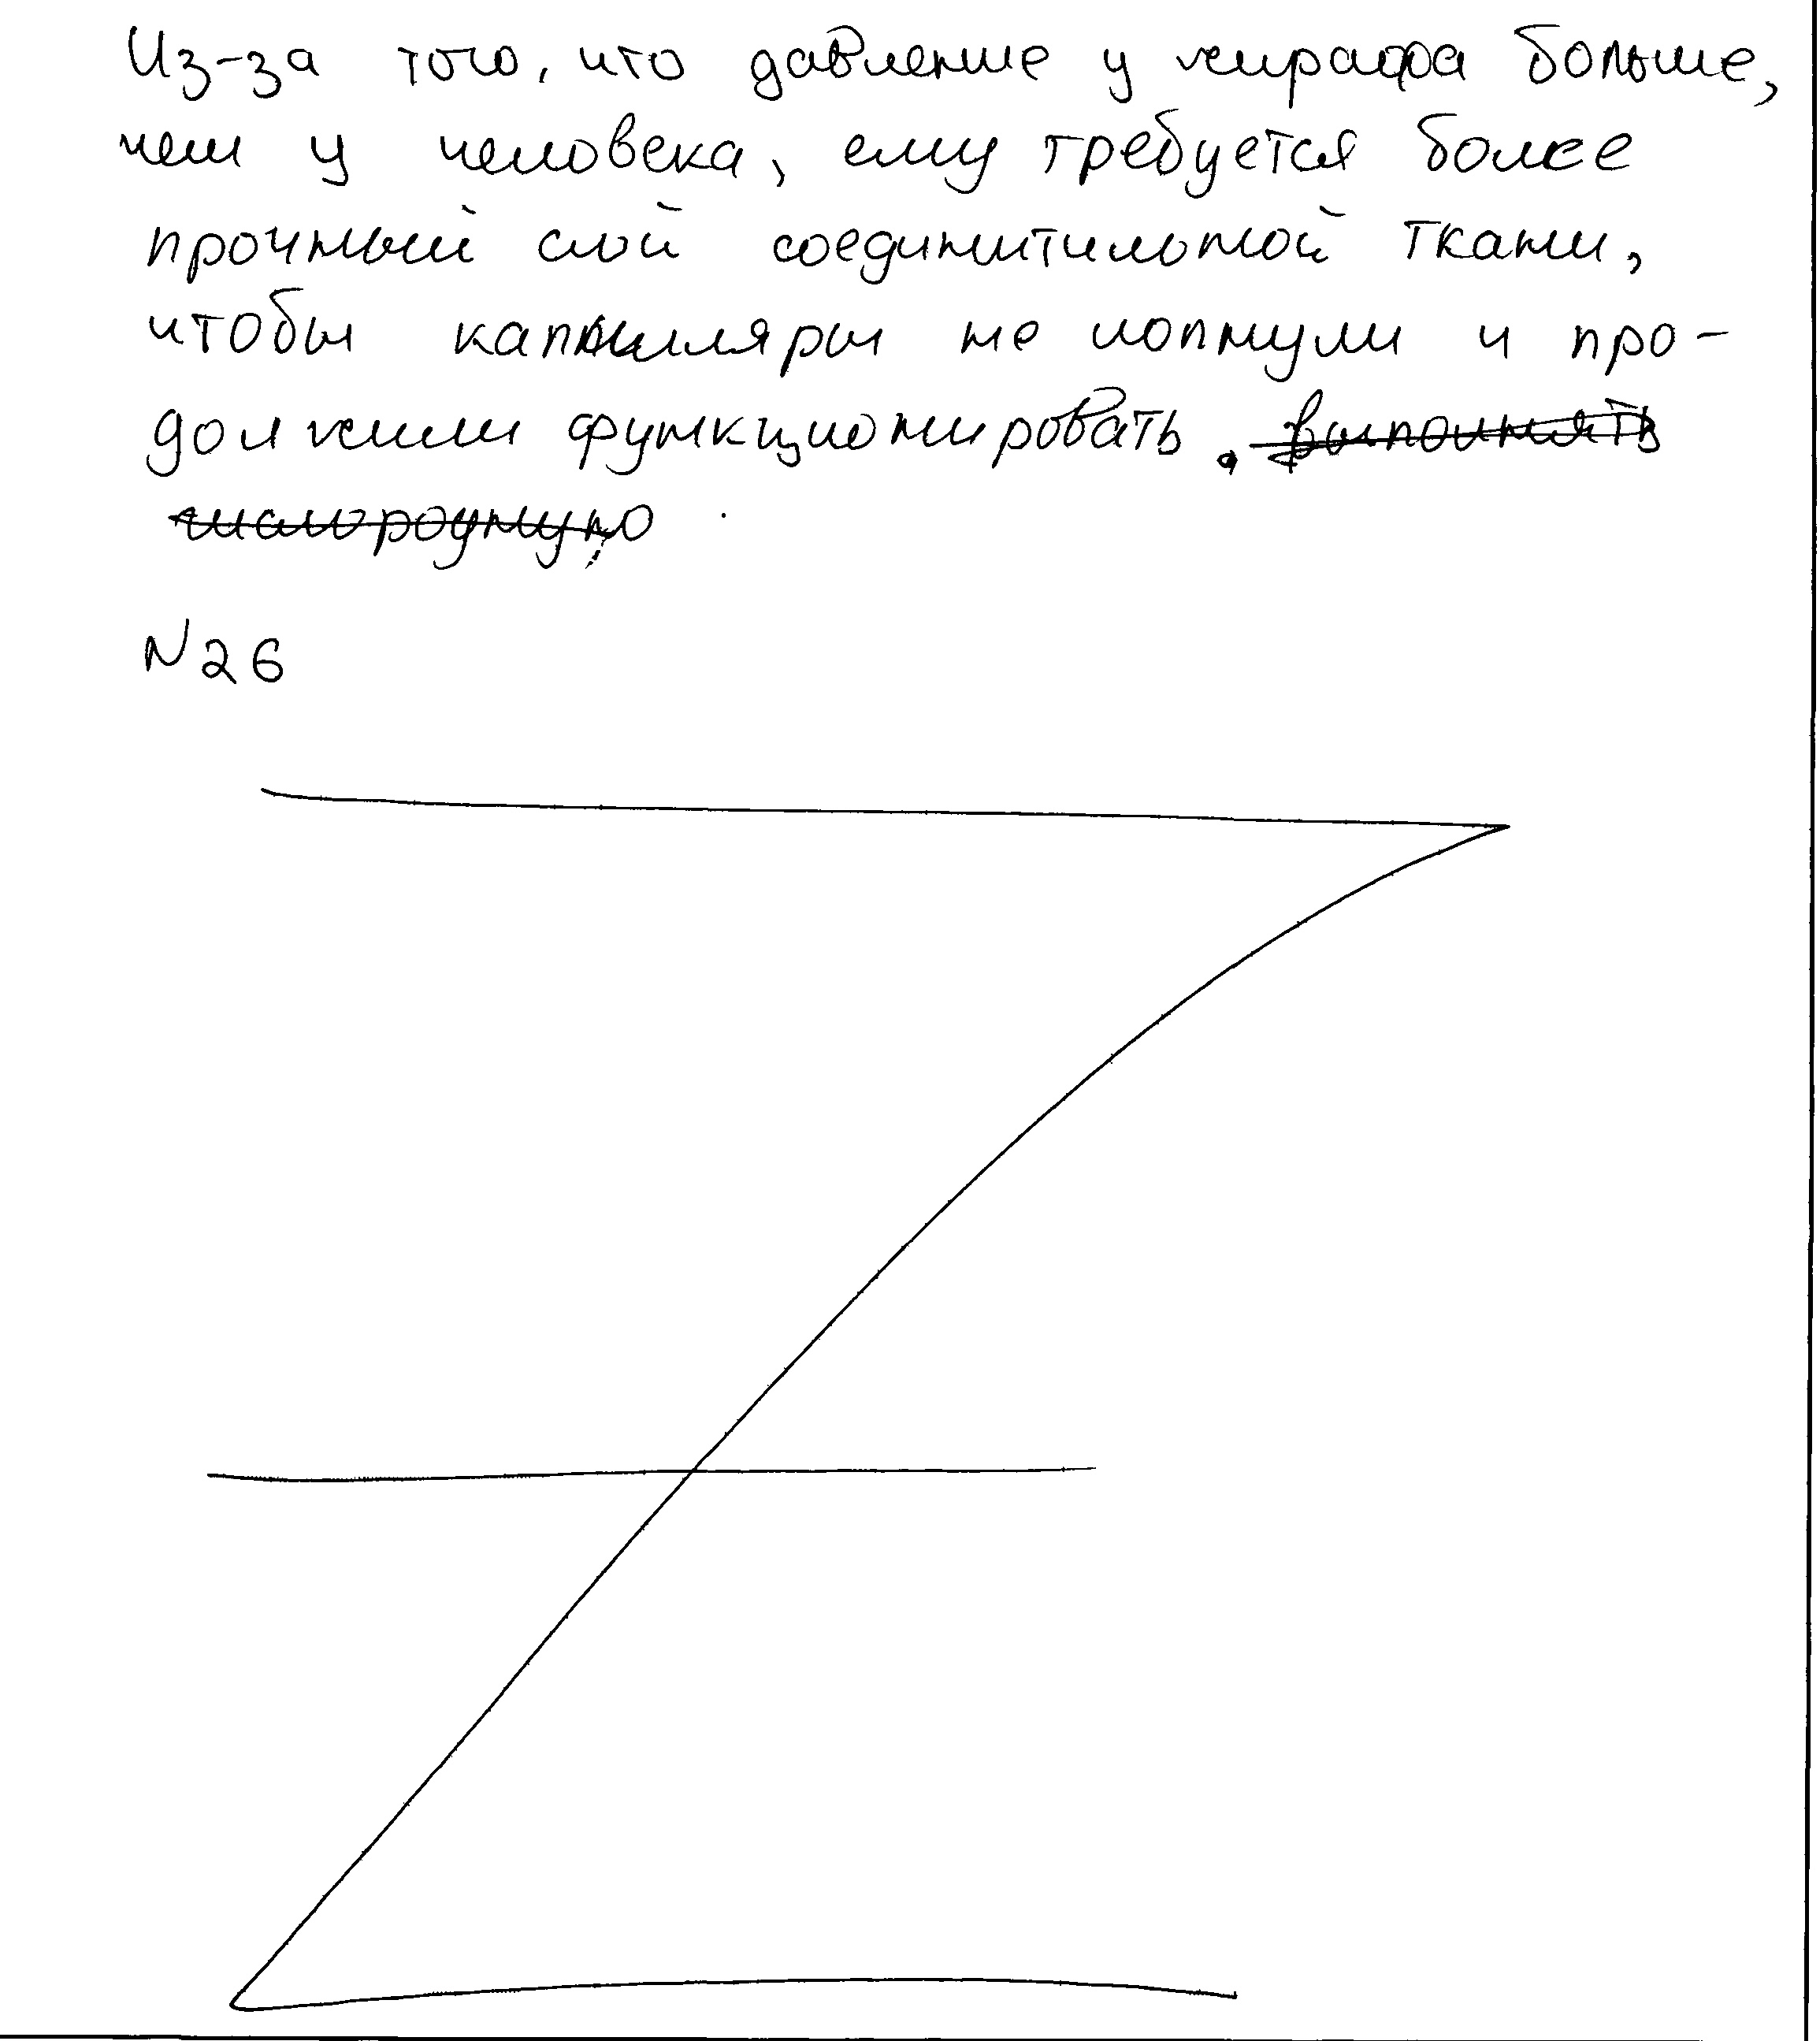 Из-за того, что давление у жирафа больше,
чем у человека, ему требуется более
прочный слой соединительной ткани,
чтобы капилляры не лопнули и про-
должили функционировать. выполнять
N26